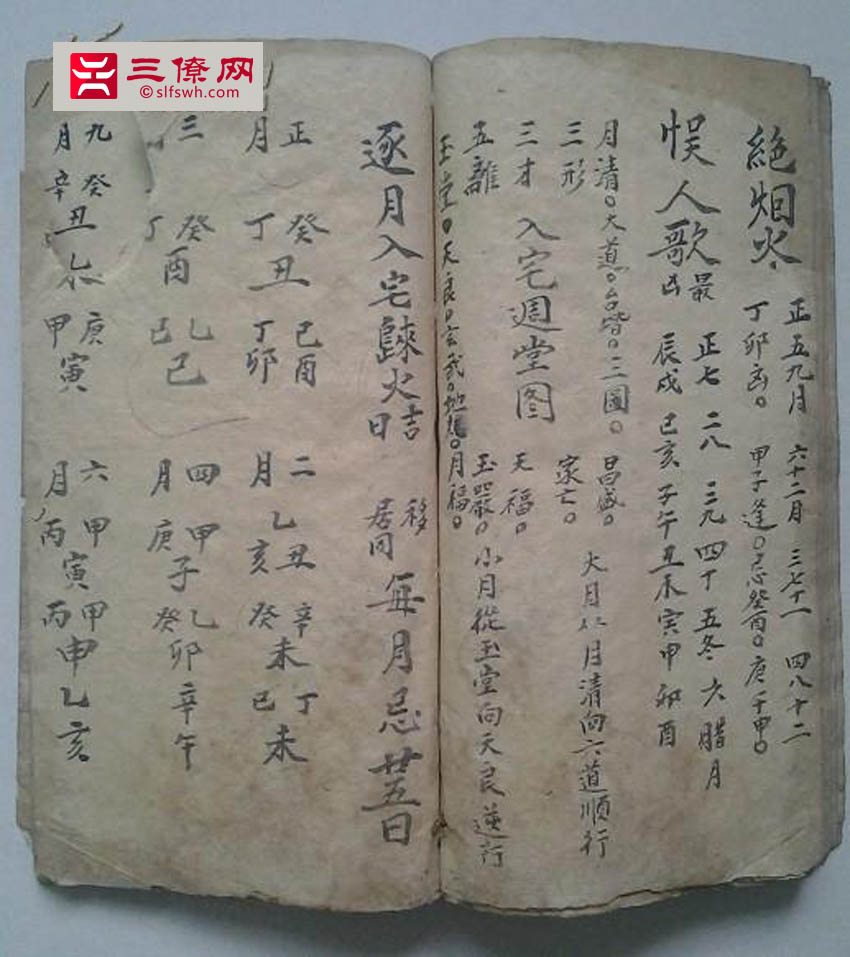 三僚网
©slfswh.com
絶烟火
正五九月 六十二月 三七十一 四八十二
丁卯凶。 甲子逢。忌癸酉。庚壬申。
悮人歌
最凶
正七 二八 三九 四十 五冬 六腊月
辰戌 巳亥 子午 丑未 寅甲 卯酉
月清。大道。台堦。三圖。 昌盛。
三形 家亡。 大月从月清向六道順行
三才 入宅週堂图 天福。
五離 玉嚴。小月從玉堂向天良逆行
玉堂。天良。玄武。地 月福。
逐月入宅歸火吉日 移居同 每月忌廿五日
正月 癸丁丑 己酉 丁卯
二月 乙丑亥 辛癸未 丁己未
三月 癸丁酉 乙己巳
四月 甲庚子 乙癸卯 辛午
九月 癸辛丑 庚甲寅
六月 甲丙寅 甲丙申 乙亥